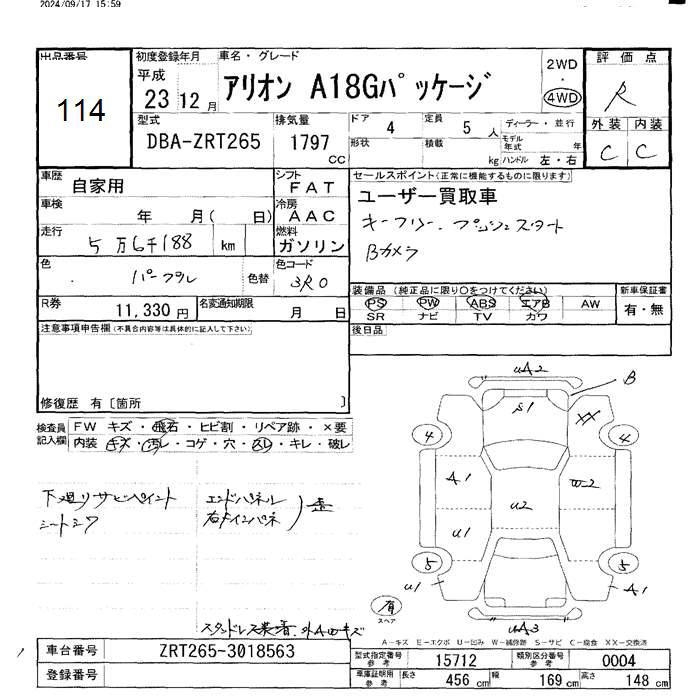 2024/09/17 15:59
出品番号
114
初度登録年月 車名・グレード
平成 23 12 月
アリオン A18Gパッケージ
2WD ・ 4WD
評価点
R
外装 内装
C C
型式 DBA-ZRT265
排気量 1797 CC
ドア 4
定員 5 人
ディーラー・並行
形状 積載 kg
モデル年式 年
ハンドル 左・右
車歴 自家用
シフト FAT
車検 年 月( 日)
冷房 AAC
走行 5万6千188 km
燃料 ガソリン
色 パープル 色替
色コード 3R0
R券 11,330 円
名変通知期限 月 日
セールスポイント(正常に機能するものに限ります)
ユーザー買取車
キーフリー、プッシュスタート
Bカメラ
装備品(純正品に限り○をつけてください)
PS PW ABS エアB AW
SR ナビ TV カワ
新車保証書
有・無
注意事項申告欄(不具合内容等は具体的に記入して下さい)
後日品
修復歴 有〔箇所 〕
検査員記入欄
FW キズ・飛石・ヒビ割・リペア跡・×要
内装 キズ・汚レ・コゲ・穴・スレ・キレ・破レ
下廻りサビペイント
シートシワ
エンドパネル
右メインパネ
歪
キズ
uA2
B
S1
XX
4 4
A1
W2
u2
u1
5 5
u1
A1
有
スペア
uA3
A-キズ E-エクボ U-凹み W-補修跡 S-サビ C-腐食 XX-交換済
車台番号 ZRT265-3018563
登録番号
型式指定番号 参考 15712
類別区分番号 参考 0004
車庫証明用 参考 長さ 456 cm 幅 169 cm 高さ 148 cm